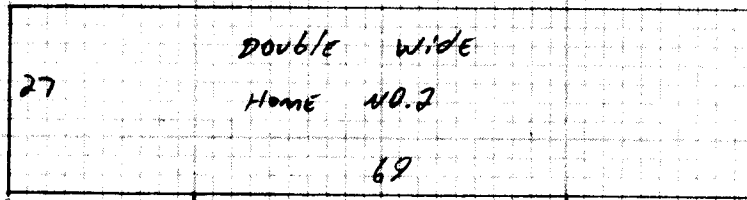 Double Wide
27
Home NO.2
69